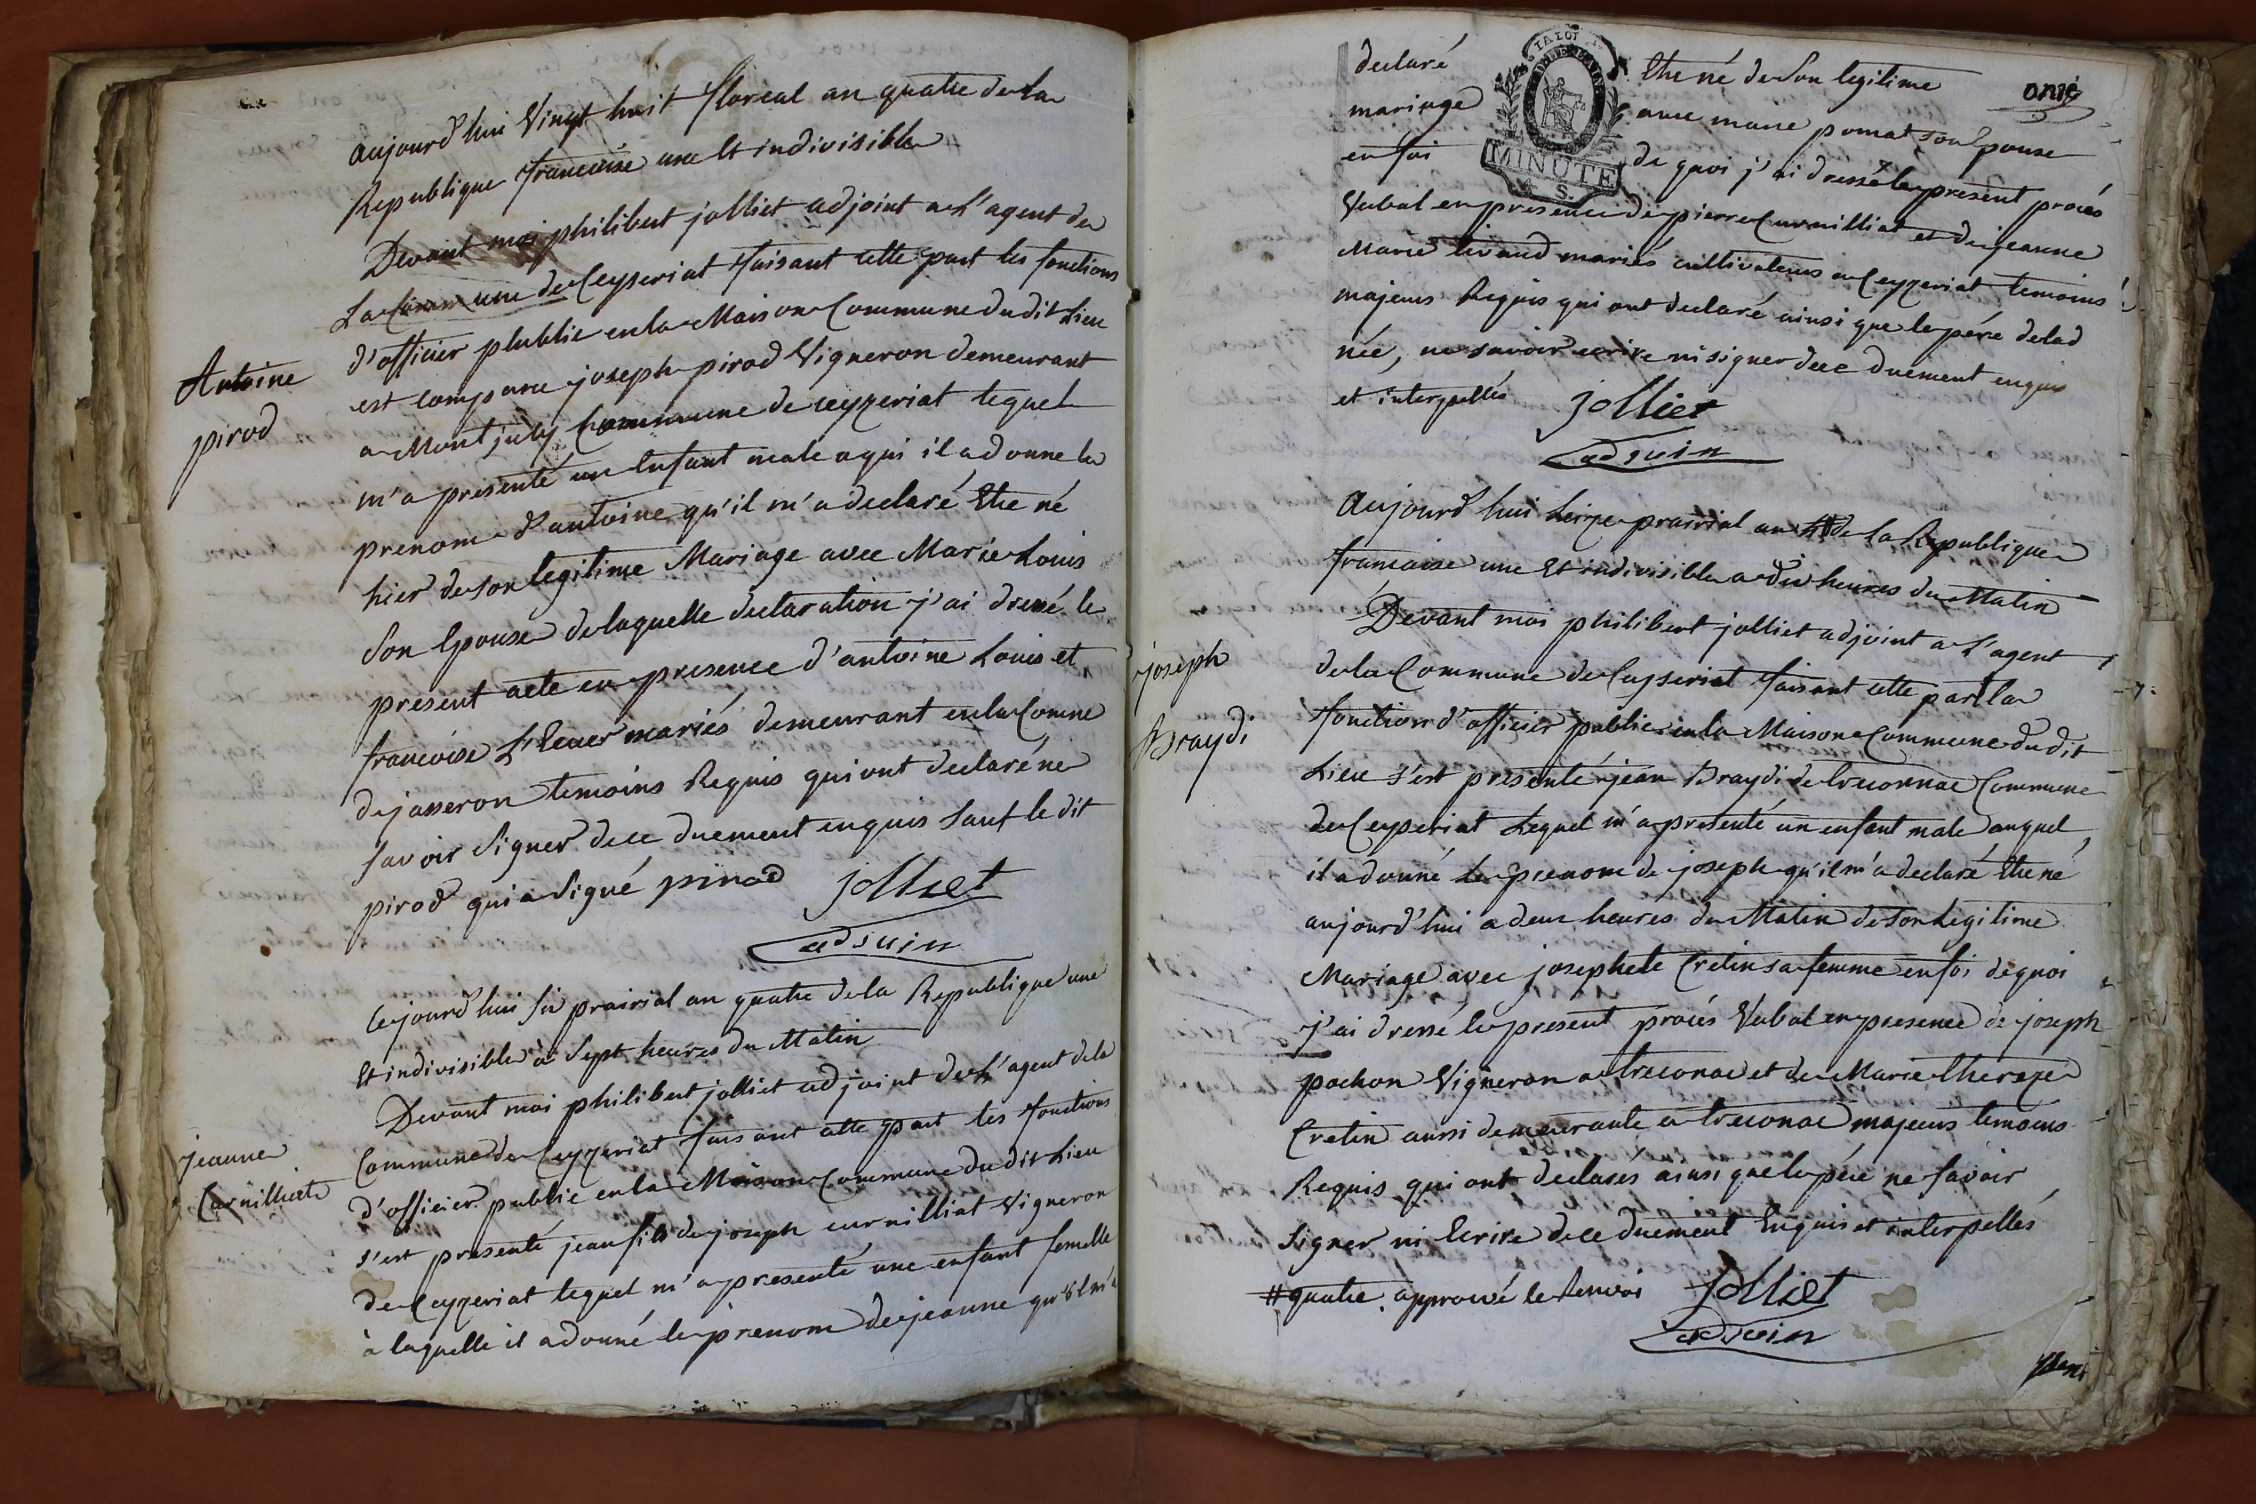 aujourd'hui vingt huit floreal an quatre de la
Republique francoise une et indivisible
Devant moi philibert jolliet adjoint a L'agent de
La Commune de Ceyseriat faisant cette part les fonctions
d'officier plublic en la Maison Commune dudit Lieu
est comparu joseph pirod Vigneron demeurant
a Montjuly Commune de ceyzeriat lequel
m'a presenté un Enfant male a qui il a donne le
prenom d'antoine qu'il m'a declaré Etre né
hier de son legitime Mariage avec Marie Louis
son Epouse de laquelle declaration j'ai dressé le
present acte en presence d'antoine Louis et
francoise mariés demeurant en la Comne
de jasseron temoins Requis qui ont declaré ne
savoir signer de ce duement enquis sauf le dit
pirod qui a signé pirod jolliet
adjoin
Antoine
pirod
Cejourd'hui six prairial an quatre de la Republique une
Et indivisible à Sept heures du Matin
Devant moi philibert jolliet adjoint de L'agent de la
Commune de Ceyzeriat faisant cette part les fonctions
d'officier public en la Maison Commune du dit Lieu
s'est presenté jean fils de joseph curnilliat Vigneron
de Ceyzeriat lequel m'a presenté une enfant femelle
à laquelle il a donné le prenom de jeanne qu'il m'a
jeanne
Curnilliat
onze
declaré Etre né de son legitime
mariage avec marie pomat son Epouse
en foi de quoi j'ai dressé le present procés
Verbal en presence de pierre Curnilliat et de jeanne
Marie tivaud mariés cultivateurs a Ceyzeriat temoins
majeurs Requis qui ont declaré ainsi que le pére de lad
née, ne savoir ecrire ni signer de ce duement enquis
et interpellés jolliet
adjoin
MINUTE
S.
Aujourd'hui seize prairial an # de la Republique
francaise une Et indivisible a dix heures du Matin
Devant moi philibert jolliet adjoint a L'agent
de la Commune de Ceyseriat faisant cette part la
fonction d'officier public en la Maison Commune du dit
Lieu s'est presenté jean Braydi de treconnac Commune
de Ceyzeriat Lequel m'a presenté un enfant male auquel
il a donné le prenom de joseph qu'il m'a declaré Etre né
aujourd'hui a deux heures du Matin de son Legitime
Mariage avec josephete Cretin sa femme en foi de quoi
j'ai dressé le present procés Verbal en presence de joseph
pochon Vigneron a treconac et de Marie therese
Cretin aussi demeurante a treconac majeurs temoins
Requis qui ont declarés ainsi que le pére ne savoir
signer ni Ecrire de ce duement Enquis et interpellés
# quatre. approuvé le Renvoi Jolliet
adjoin
joseph
Braydi